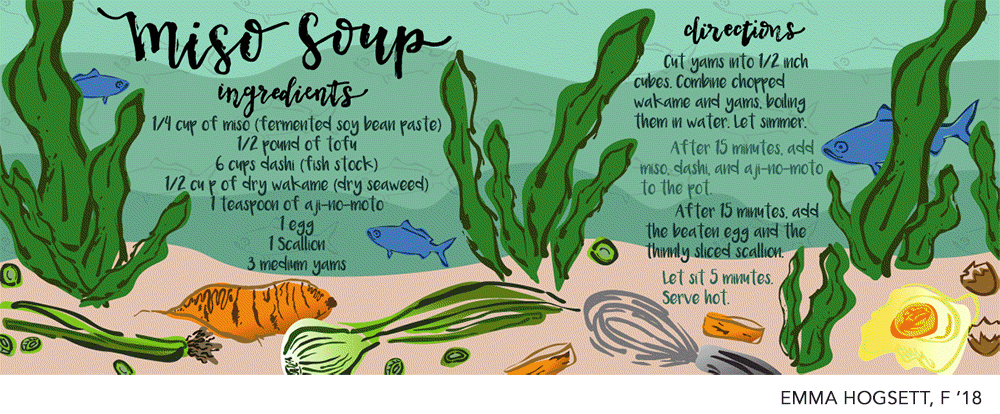 Miso Soup
ingredients
1/4 cup of miso (fermented soy bean paste)
1/2 pound of tofu
6 cups dashi (fish stock)
1/2 cup of dry wakame (dry seaweed)
1 teaspoon of aji-no-moto
1 egg
1 Scallion
3 medium yams
directions
Cut yams into 1/2 inch
cubes. Combine chopped
wakame and yams, boiling
them in water. Let simmer.
After 15 minutes, add
miso, dashi, and aji-no-moto
to the pot.
After 15 minutes, add
the beaten egg and the
thinnly sliced scallion.
Let sit 5 minutes.
Serve hot.
EMMA HOGSETT, F '18